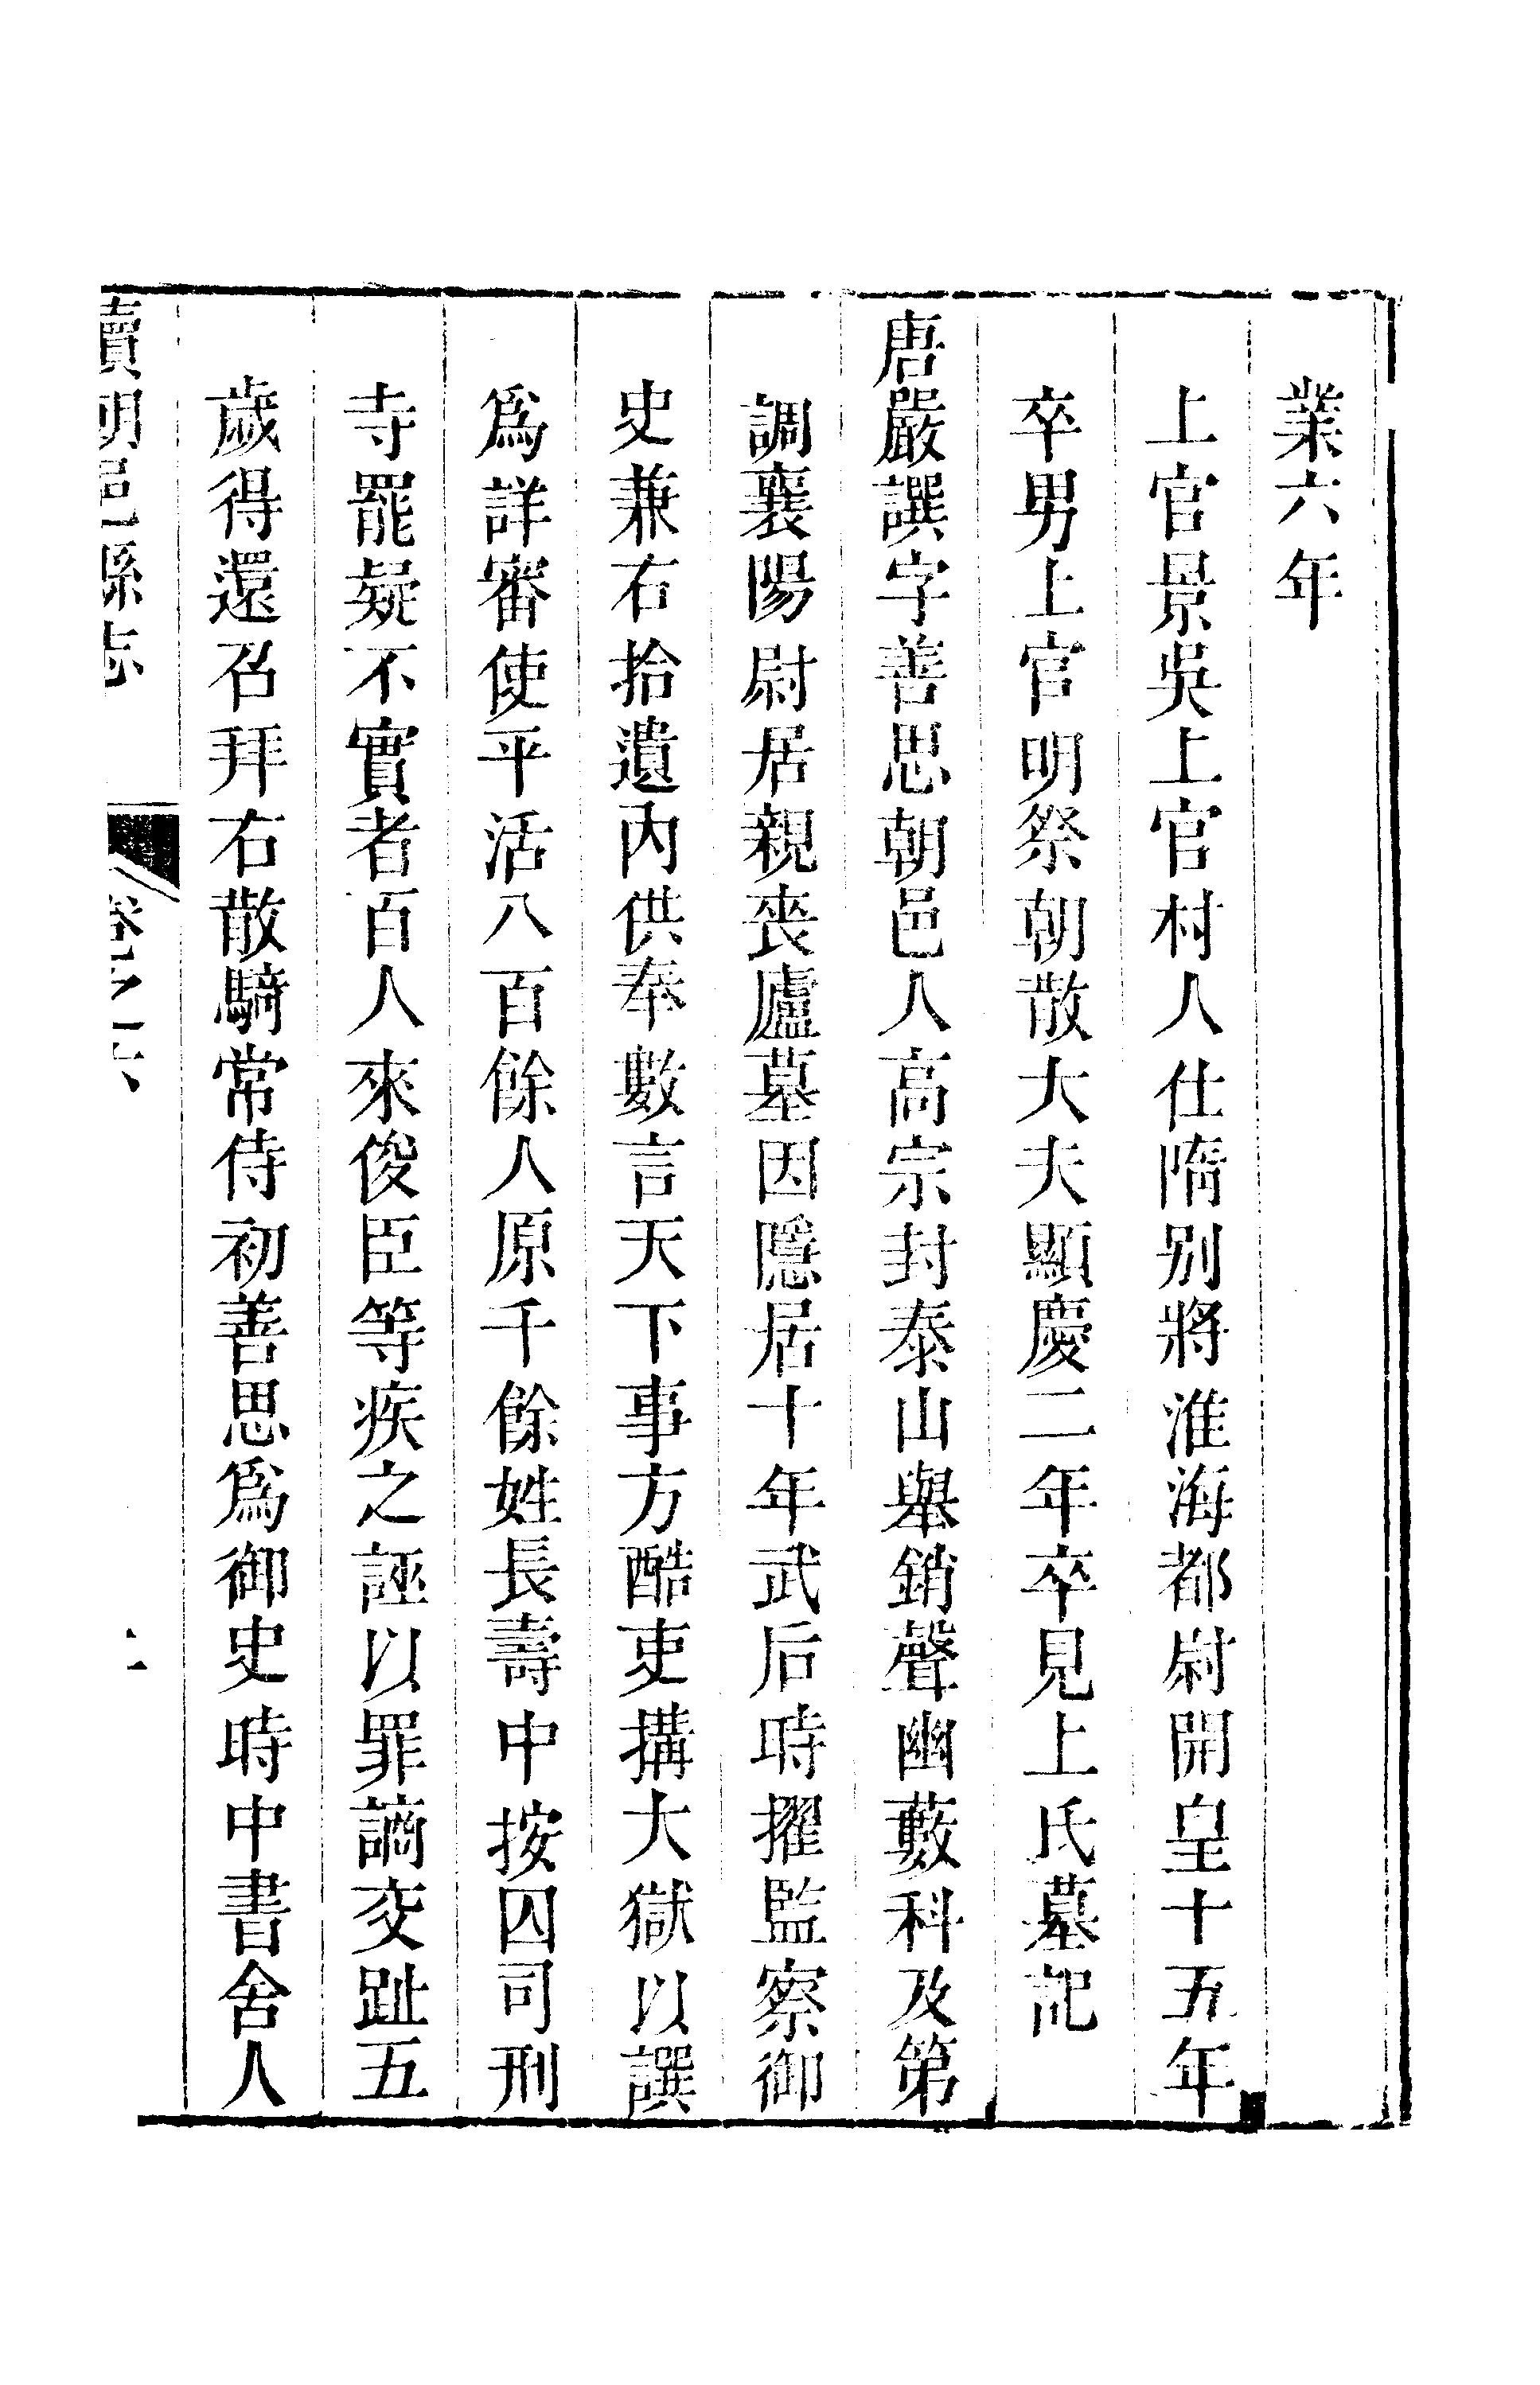 業六年
上官景吳上官村人仕隋别將淮海都尉開皇十五年
卒男上官明祭朝散大夫顯慶二年卒見上氏墓記
唐嚴譔字善思朝邑人高宗封泰山舉銷聲幽藪科及第
調襄陽尉居親喪廬墓因隱居十年武后時擢監察御
史兼右拾遺內供奉數言天下事方酷吏搆大獄以譔
爲詳審使平活八百餘人原千餘姓長壽中按囚司刑
寺罷疑不實者百人來俊臣等疾之誣以罪謫交趾五
歲得還召拜右散騎常侍初善思爲御史時中書舍人
續朝邑縣志 卷之六